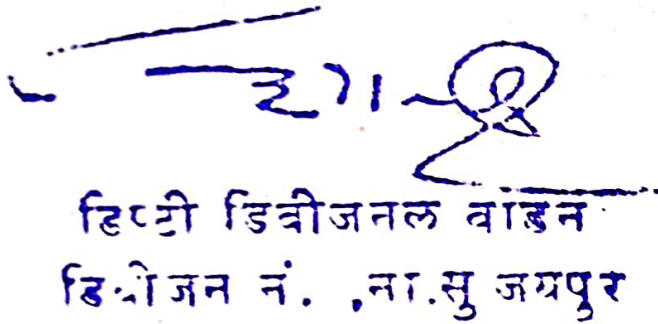 डिप्टी डिवीजनल वार्डन
डिवीजन नं. .ना.सु जयपुर